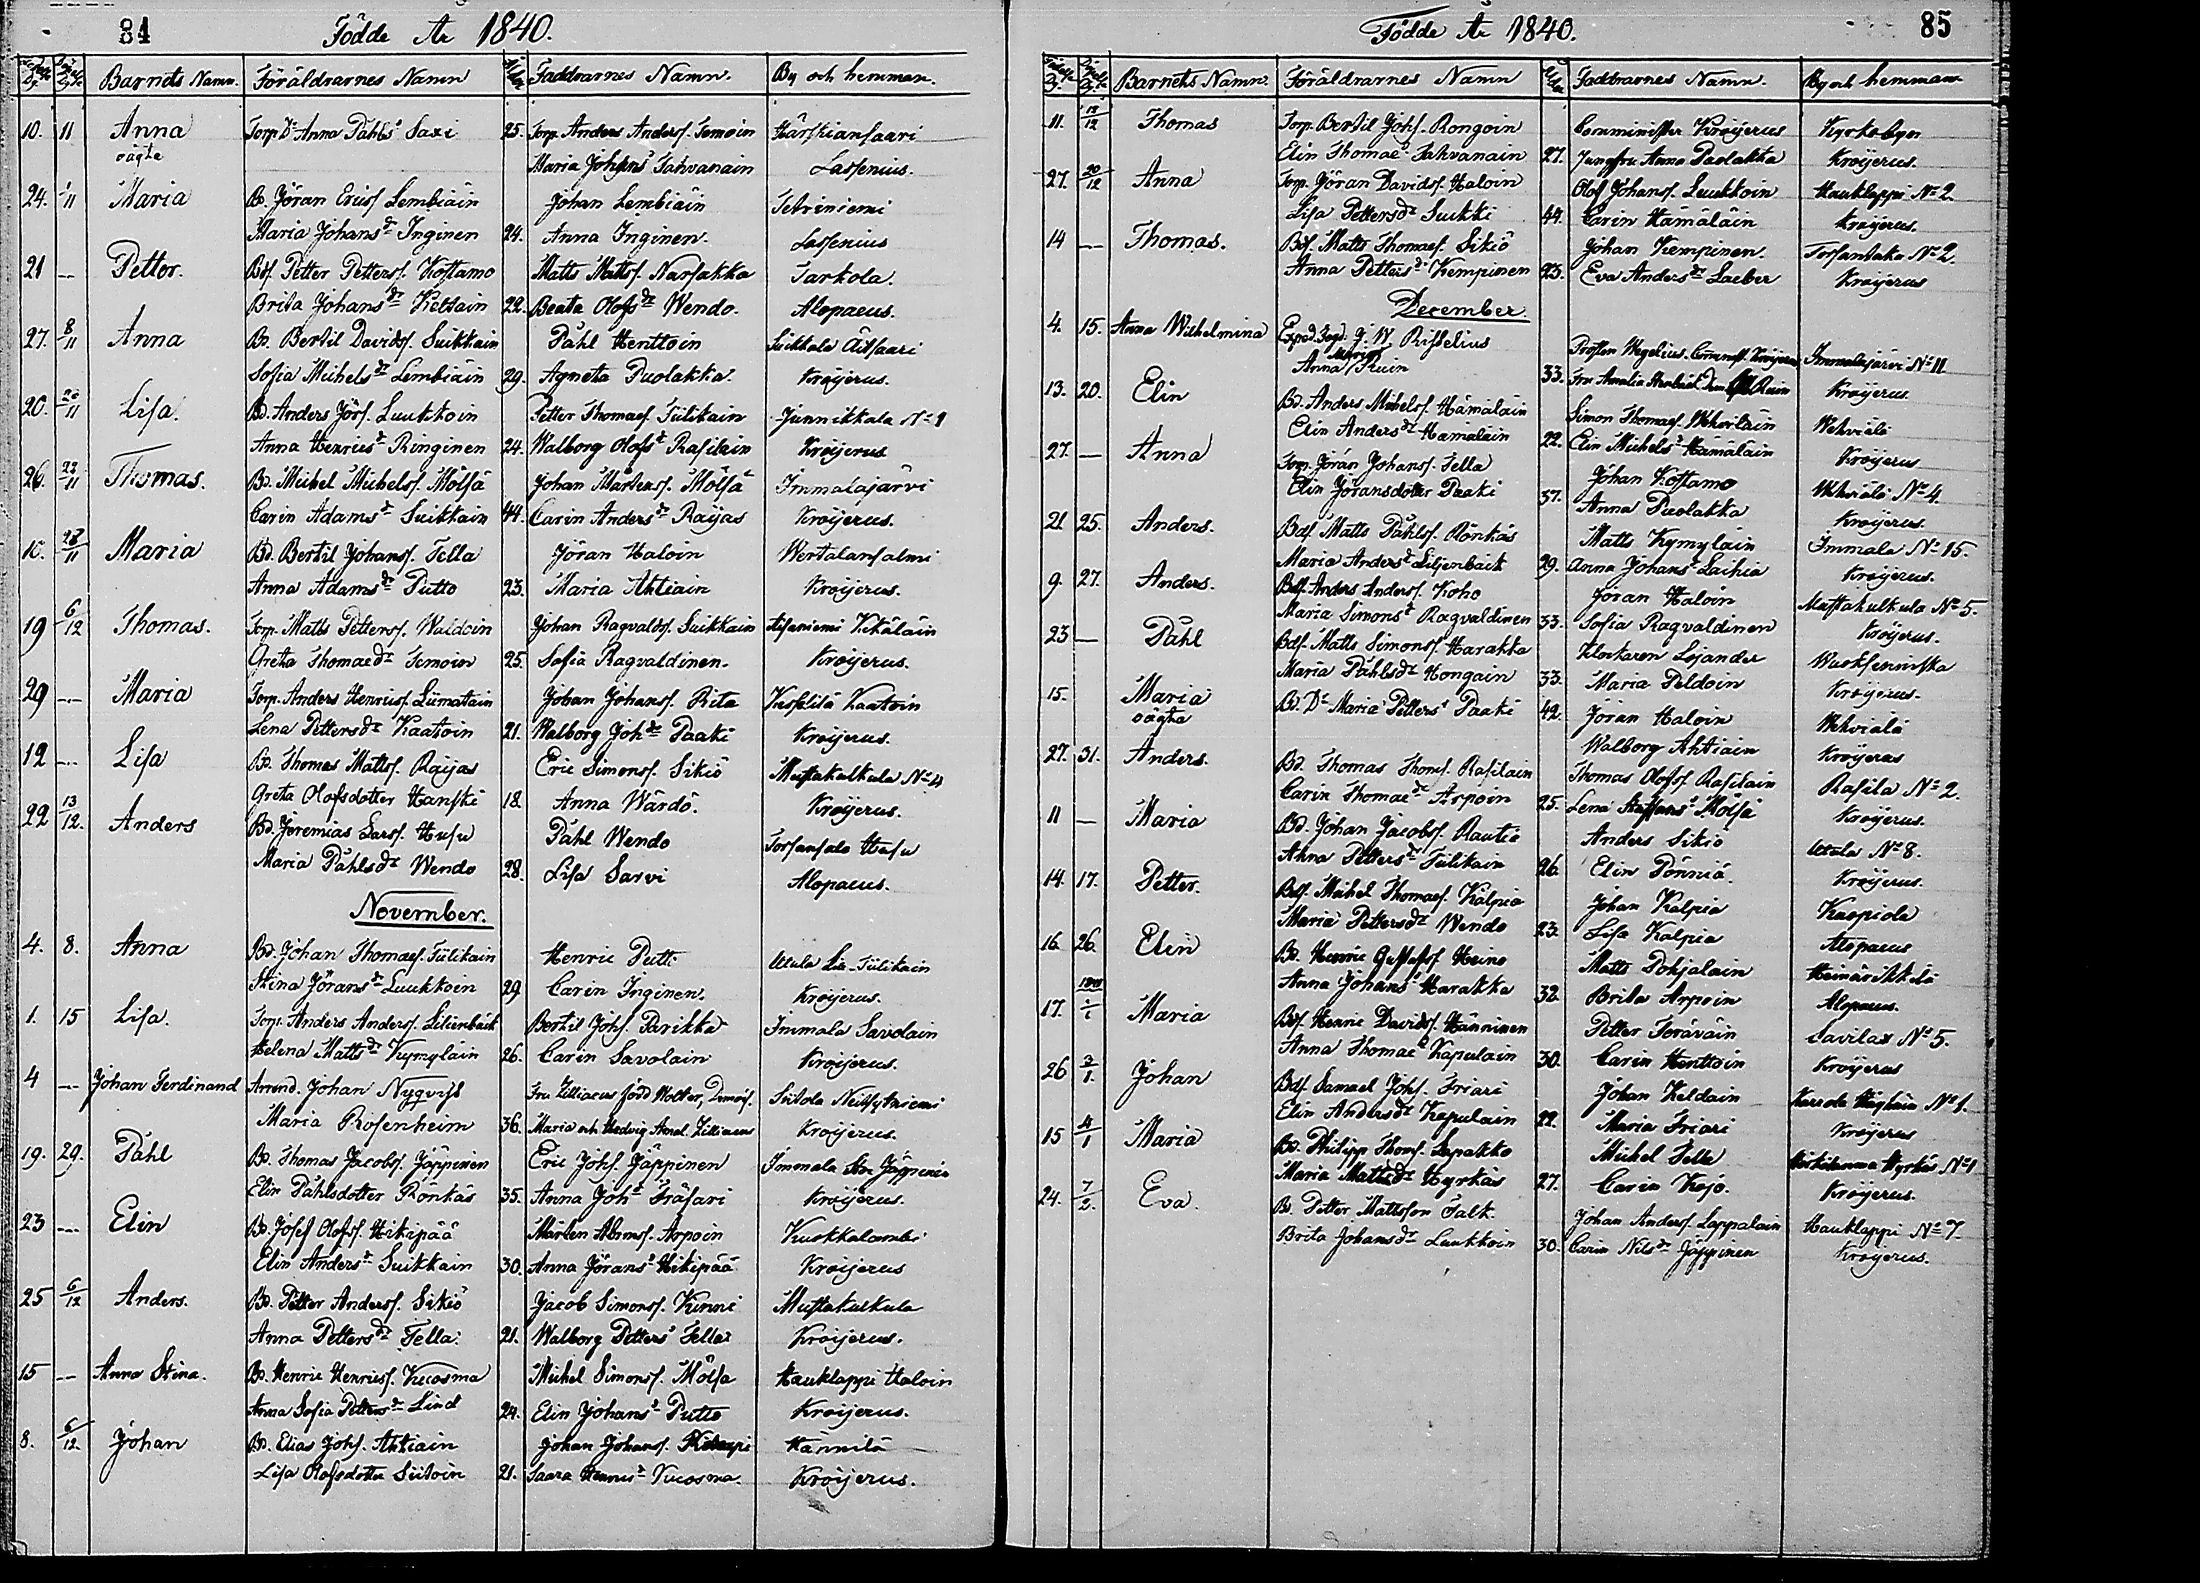 84
Födde År 1840.
Barnets Namn. Föräldrarnes Namn Faddrarnes Namn. By och hemman.
10. 11 Anna Torp. Dr Anna Påhlsdr Saxi 25. Torp. Anders Andersf. Temoin Härskiansaari
oägta Maria Johansdr Tahvanain Lassenius.
24. 1/11 Maria Bd. Jöran Ericsf. Lembiäin Johan Lembiäin Tetriniemi
Maria Johansdr Inginen 24. Anna Inginen. Lassenius
21 — Petter. Bdf. Petter Pettersf. Kostamo Matts Mattsf. Narsakka Tarkola.
Brita Johansdr Keltain 22. Beata Olofsdr Wendo. Alopaeus.
27. 8/11 Anna Bd. Bertil Davidsf. Suikkain Påhl Henttoin Suikkala Äitsaari
Sofia Michelsdr Lembiäin 29. Agneta Puolakka. Kröijerus.
20. 20/11 Lisa. Bd. Anders Jörf. Luukkoin Petter Thomaef. Tiilikain Junnikkala No 1
Anna Henricsdr Ringinen 24. Walborg Olofsdr Rasilain Kröijerus
26. 22/11 Thomas. Bd. Michel Michelsf. Mölsä Johan Mårtensf. Mölsä Immalajärvi
Carin Adamsdr Suikkain 44. Carin Andersdr Raijas Kröijerus.
10. 28/11 Maria Bd. Bertil Johansf. Tella Jöran Haloin Wertalansalmi
Anna Adamsdr Putto 23. Maria Ahtiain Kröijerus.
19 6/12 Thomas. Torp. Matts Pettersf. Waldoin Johan Ragvaldsf. Suikkain
Greta Thomaedr Temoin 25. Sofia Ragvaldinen. Kröijerus.
29 — Maria Torp. Anders Henricsf. Liimatain Johan Johansf. Rita
Lena Pettersdr Kaatoin 21. Walborg Johdr Paaki Kröijerus.
12 — Lisa Bd. Thomas Mattsf. Raijas Eric Simonsf. Sikiö Mustakulkula No 4
Greta Olofsdotter Hanski 18. Anna Wärdö. Kröijerus.
22 13/12. Anders Bd. Jeremias Larsf. Husu Påhl Wendo Torsansalo Husu
Maria Påhlsdr Wendo 28. Lisa Sarvi Alopaeus.
November.
4. 8. Anna Bd. Johan Thomaef. Tiilikain Henric Putto Utula Tiilikain
Stina Jöransdr Luukkoin 29 Carin Inginen. Kröijerus.
1. 15 Lisa. Torp. Anders Andersf. Lilienbäck Bertil Johf. Parikka Immala Savolain
Helena Mattsdr Kymylain 26. Carin Savolain Kröijerus.
4 — Johan Ferdinand Arrend. Johan Nyqvist Fru Zilliacus född Molter, Demois. Siitola Neitsytniemi
Maria Rosenheim 36. Maria och Hedvig Amal. Zilliacus Kröijerus.
19. 29. Påhl Bd. Thomas Jacobsf. Jäppinen Eric Johf. Jäppinen Immala Jäppinen
Elin Påhlsdotter Rönkäs 35. Anna Johdr Träsari Kröijerus.
23 — Elin Bd. Josef Olofsf. Hikipää Mårten Arpoin Kuokkalambi
Elin Andersdr Suikkain 30. Anna Jöransdr Hikipää Kröijerus
25 6/12 Anders. Bd. Petter Andersf. Sikiö Jacob Simonsf. Kinni Mustakulkula
Anna Pettersdr Tella. 21. Walborg Pettersdr Tella Kröijerus.
15 — Anna Stina. Bd. Henric Henricsf. Kuosma Michel Simonsf. Mölsä Hauklappi Haloin
Anna Sofia Pettersdr Lind 24. Elin Johansdr Putto Kröijerus.
8. 6/12. Johan Bd. Elias Johf. Ahtiain Johan Johansf. Hännilä
Lisa Olofsdotter Siitoin 21. Saara Henricsdr Kuosma. Kröijerus.
85
Födde År 1840.
Barnets Namn. Föräldrarnes Namn Faddrarnes Namn. By och hemman
11. 13/12 Thomas Torp. Bertil Johf. Rongoin Comminister Kröijerus Kyrkobyn
Elin Thomaedr Tahvanain 27. Jungfru Anna Puolakka Kröijerus.
27. 20/12 Anna Torp. Jöran Davidsf. Haloin Olof Johansf. Luukkoin Hauklappi No 2.
Lisa Pettersdr Suikki 44. Carin Hämäläin Kröijerus.
14 — Thomas. Bdf. Matts Thomaef. Sikiö Johan Kempinen. Torsantaka No 2.
Anna Pettersdr Kempinen 23. Eva Andersdr Laeber Kröijerus
December.
4. 15. Anna Wilhelmina Exped. Fogd. G. W. Risselius Prosten Hegelius, Commst. Kröijerus Immalajärvi No 11
Anna Maria Ruin 33. Fru Amalia Ruin Kröijerus.
13. 20. Elin Bd. Anders Michelsf. Hämäläin Simon Thomaef. Wehviläin Wehviälä
Elin Andersdr Hämäläin 22. Elin Michelsdr Hämäläin Kröijerus
27. — Anna Torp. Jöran Johansf. Tella Johan Kostamo Wehviälä No 4.
Elin Jöransdotter Paaki 37. Anna Puolakka Kröijerus.
21 25. Anders. Bdf. Matts Påhlsf. Rönkäs Matts Kymylain Immala No 15.
Maria Andersdr Liljenbäck 29. Anna Johansdr Laihia Kröijerus.
9. 27. Anders. Bdf. Anders Andersf. Koho Jöran Haloin Mustakulkula No 5.
Maria Simonsdr Ragvaldinen 33. Sofia Ragvaldinen Kröijerus.
23 — Påhl Bdf. Matts Simonsf. Harakka Klockaren Lojander Wuoksenniska
Maria Påhlsdr Hongain 33. Maria Peldoin Kröijerus.
15. Maria Bd. Dr Maria Pettersdr Paaki 42. Jöran Haloin Wehviälä
oägta Walborg Ahtiain Kröijerus
27. 31. Anders. Bd. Thomas Thomf. Rasilain Thomas Olofsf. Rasilain Rasila No 2.
Carin Thomaedr Arpoin 25. Lena Staffansdr Mölsä Kröijerus.
11 — Maria Bd. Johan Jacobsf. Rautio Anders Sikiö Utula No 8.
Anna Pettersdr Tiilikain 26. Elin Pönniä. Kröijerus.
14. 17. Petter. Bdf. Michel Thomaef. Kälpiä Johan Kalpia Kaspiola
Maria Pettersdr Wendo 23. Lisa Kalpia Alopaeus
16. 26. Elin Bd. Henric Gustafsf. Heino Matts Pohjalain Hainärikkilä
Anna Johansdr Harakka 32. Brita Arpoin Alopaeus.
17. 1/1 Maria Bdf. Henric Davidsf. Hänninen Petter Toräväin Savilax No 5.
Anna Thomaedr Kapulain 30. Carin Henttoin Kröijerus
26 3/1. Johan Bdf. Samuel Johf. Friari Johan Keldain
Elin Andersdr Kapulain 22. Maria Friari Kröijerus
15 4/1 Maria Bd. Philipp Thomf. Lapakko Michel Tella
Maria Mattsdr Hyrkäs 27. Carin Kojo. Kröijerus.
24. 7/2. Eva. Bd. Petter Mattsson Falk. Johan Andersf. Lappalain Hauklappi No 7
Brita Johansdr Luukkoin 30. Carin Nilsdr Jäppinen Kröijerus.